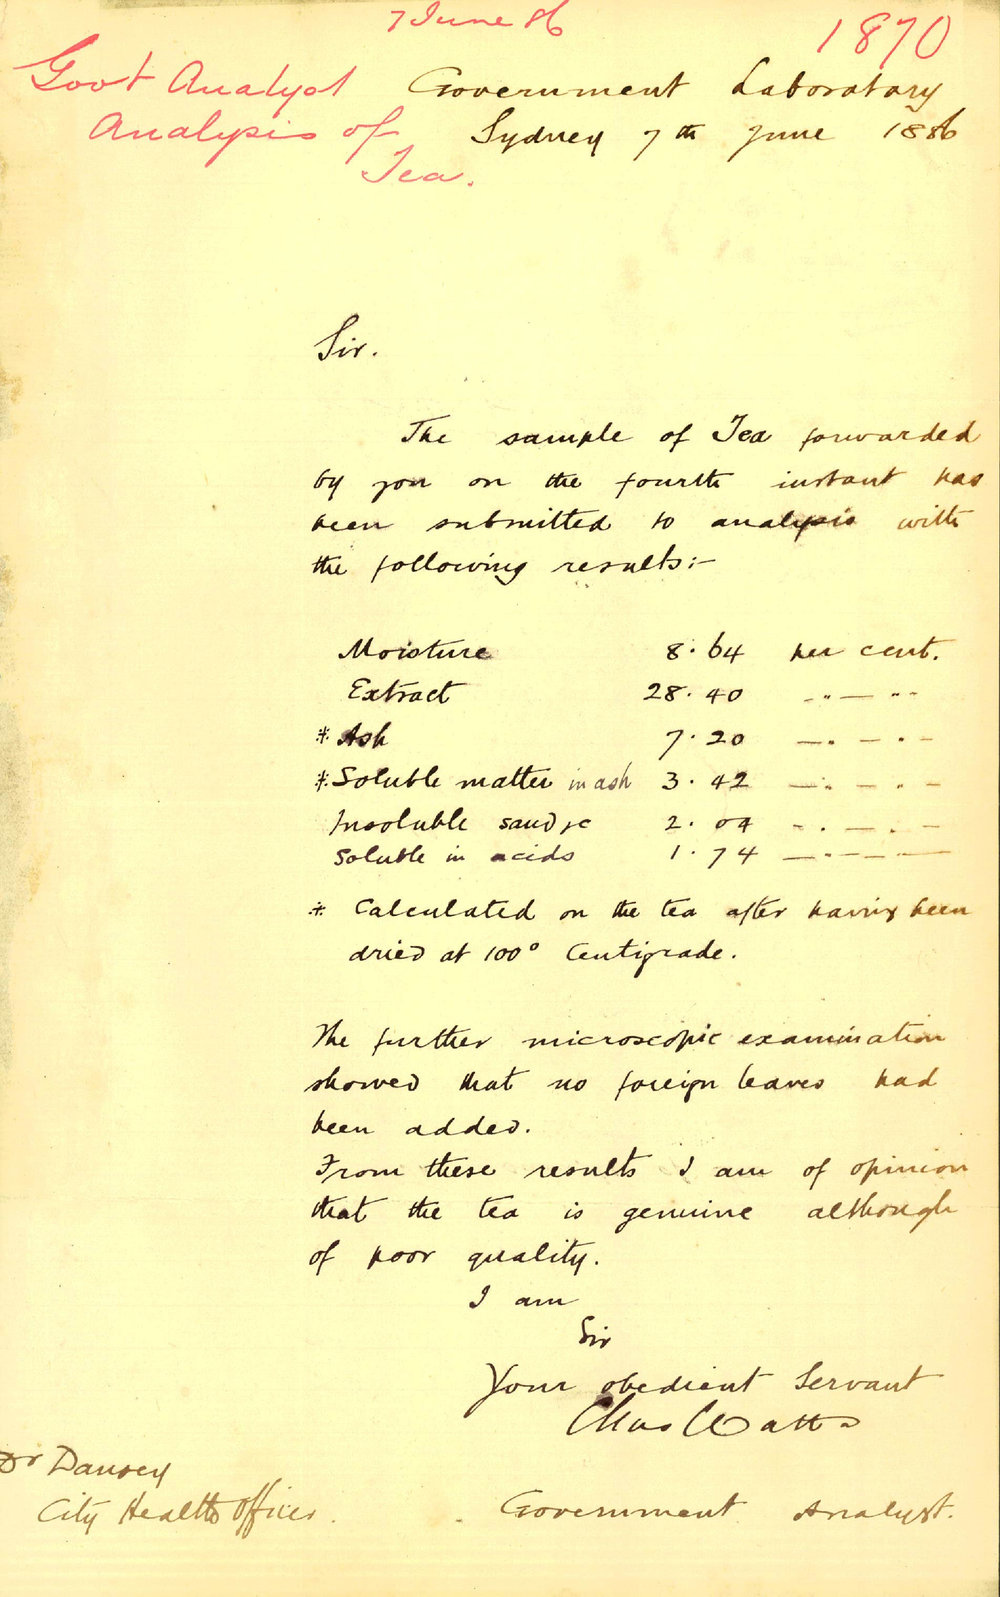 7 June 86
1870
Govt Analyst
Analysis of
Tea.
Government Laboratory
Sydney 7th June 1886
Sir.
The sample of Tea forwarded
by you on the fourth instant has
been submitted to analysis with
the following results:-
Moisture 8.64 per cent.
Extract 28.40 -"-"-
* Ash 7.20 -"-"-
* Soluble matter in ash 3.42 -"-"-
Insoluble sand &c 2.04 -"-"-
Soluble in acids 1.74 -"-"-
* Calculated on the tea after having been
dried at 100° Centigrade.
The further microscopic examination
showed that no foreign leaves had
been added.
From these results I am of opinion
that the tea is genuine although
of poor quality.
I am
Sir
Your obedient Servant
Chas Watts
Government Analyst.
Dr Dansey
City Health Officer.